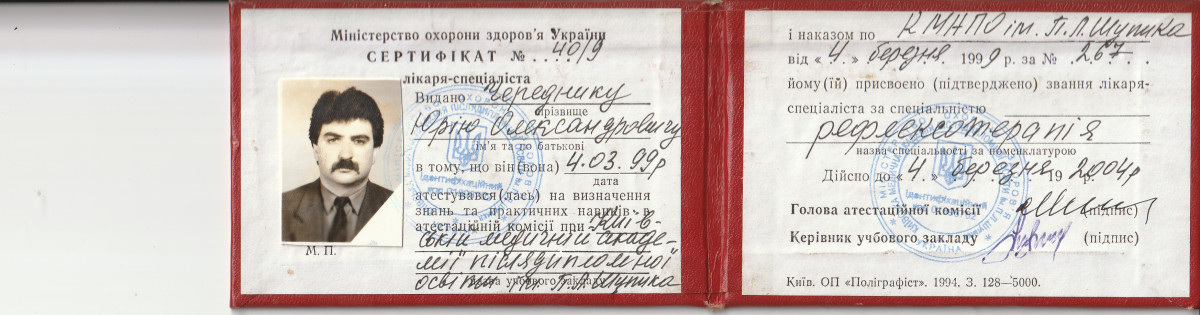 Міністерство охорони здоров'я України
СЕРТИФІКАТ № 40/9
лікаря-спеціаліста
Видано Череднику
прізвище
Юрію Олександровичу
ім'я та по батькові
в тому, що він(вона) 4.03.99р
дата
атестувався(лась) на визначення
знань та практичних навичок в
атестаційній комісії при Київ-
ській медичній акаде-
мії післядипломної
освіти ім. П.Л.Шупика
назва учбового закладу
М. П.
і наказом по КМАПО ім. П.Л.Шупика
від « 4. » березня 1999 р. за № 267.
йому (їй) присвоєно (підтверджено) звання лікаря-
спеціаліста за спеціальністю
рефлексотерапія
назва спеціальності за номенклатурою
Дійсно до « 4 » березня 19 2004р
Голова атестаційної комісії (підпис)
Керівник учбового закладу (підпис)
УКРАЇНА
Ідентифікаційний
Київ. ОП «Поліграфіст». 1994. З. 128—5000.